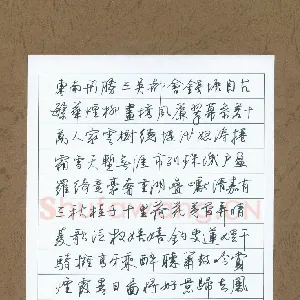 東南形勝三吳都會錢塘自古
繁華煙柳畫橋風簾翠幕參差十
萬人家雲樹繞堤沙怒濤捲
霜雪天塹無涯市列珠璣戶盈
羅綺競豪奢重湖疊巘清嘉有
三秋桂子十里荷花羌管弄晴
菱歌泛夜嬉嬉釣叟蓮娃千
騎擁高牙乘醉聽簫鼓吟賞
煙霞異日圖將好景歸去鳳